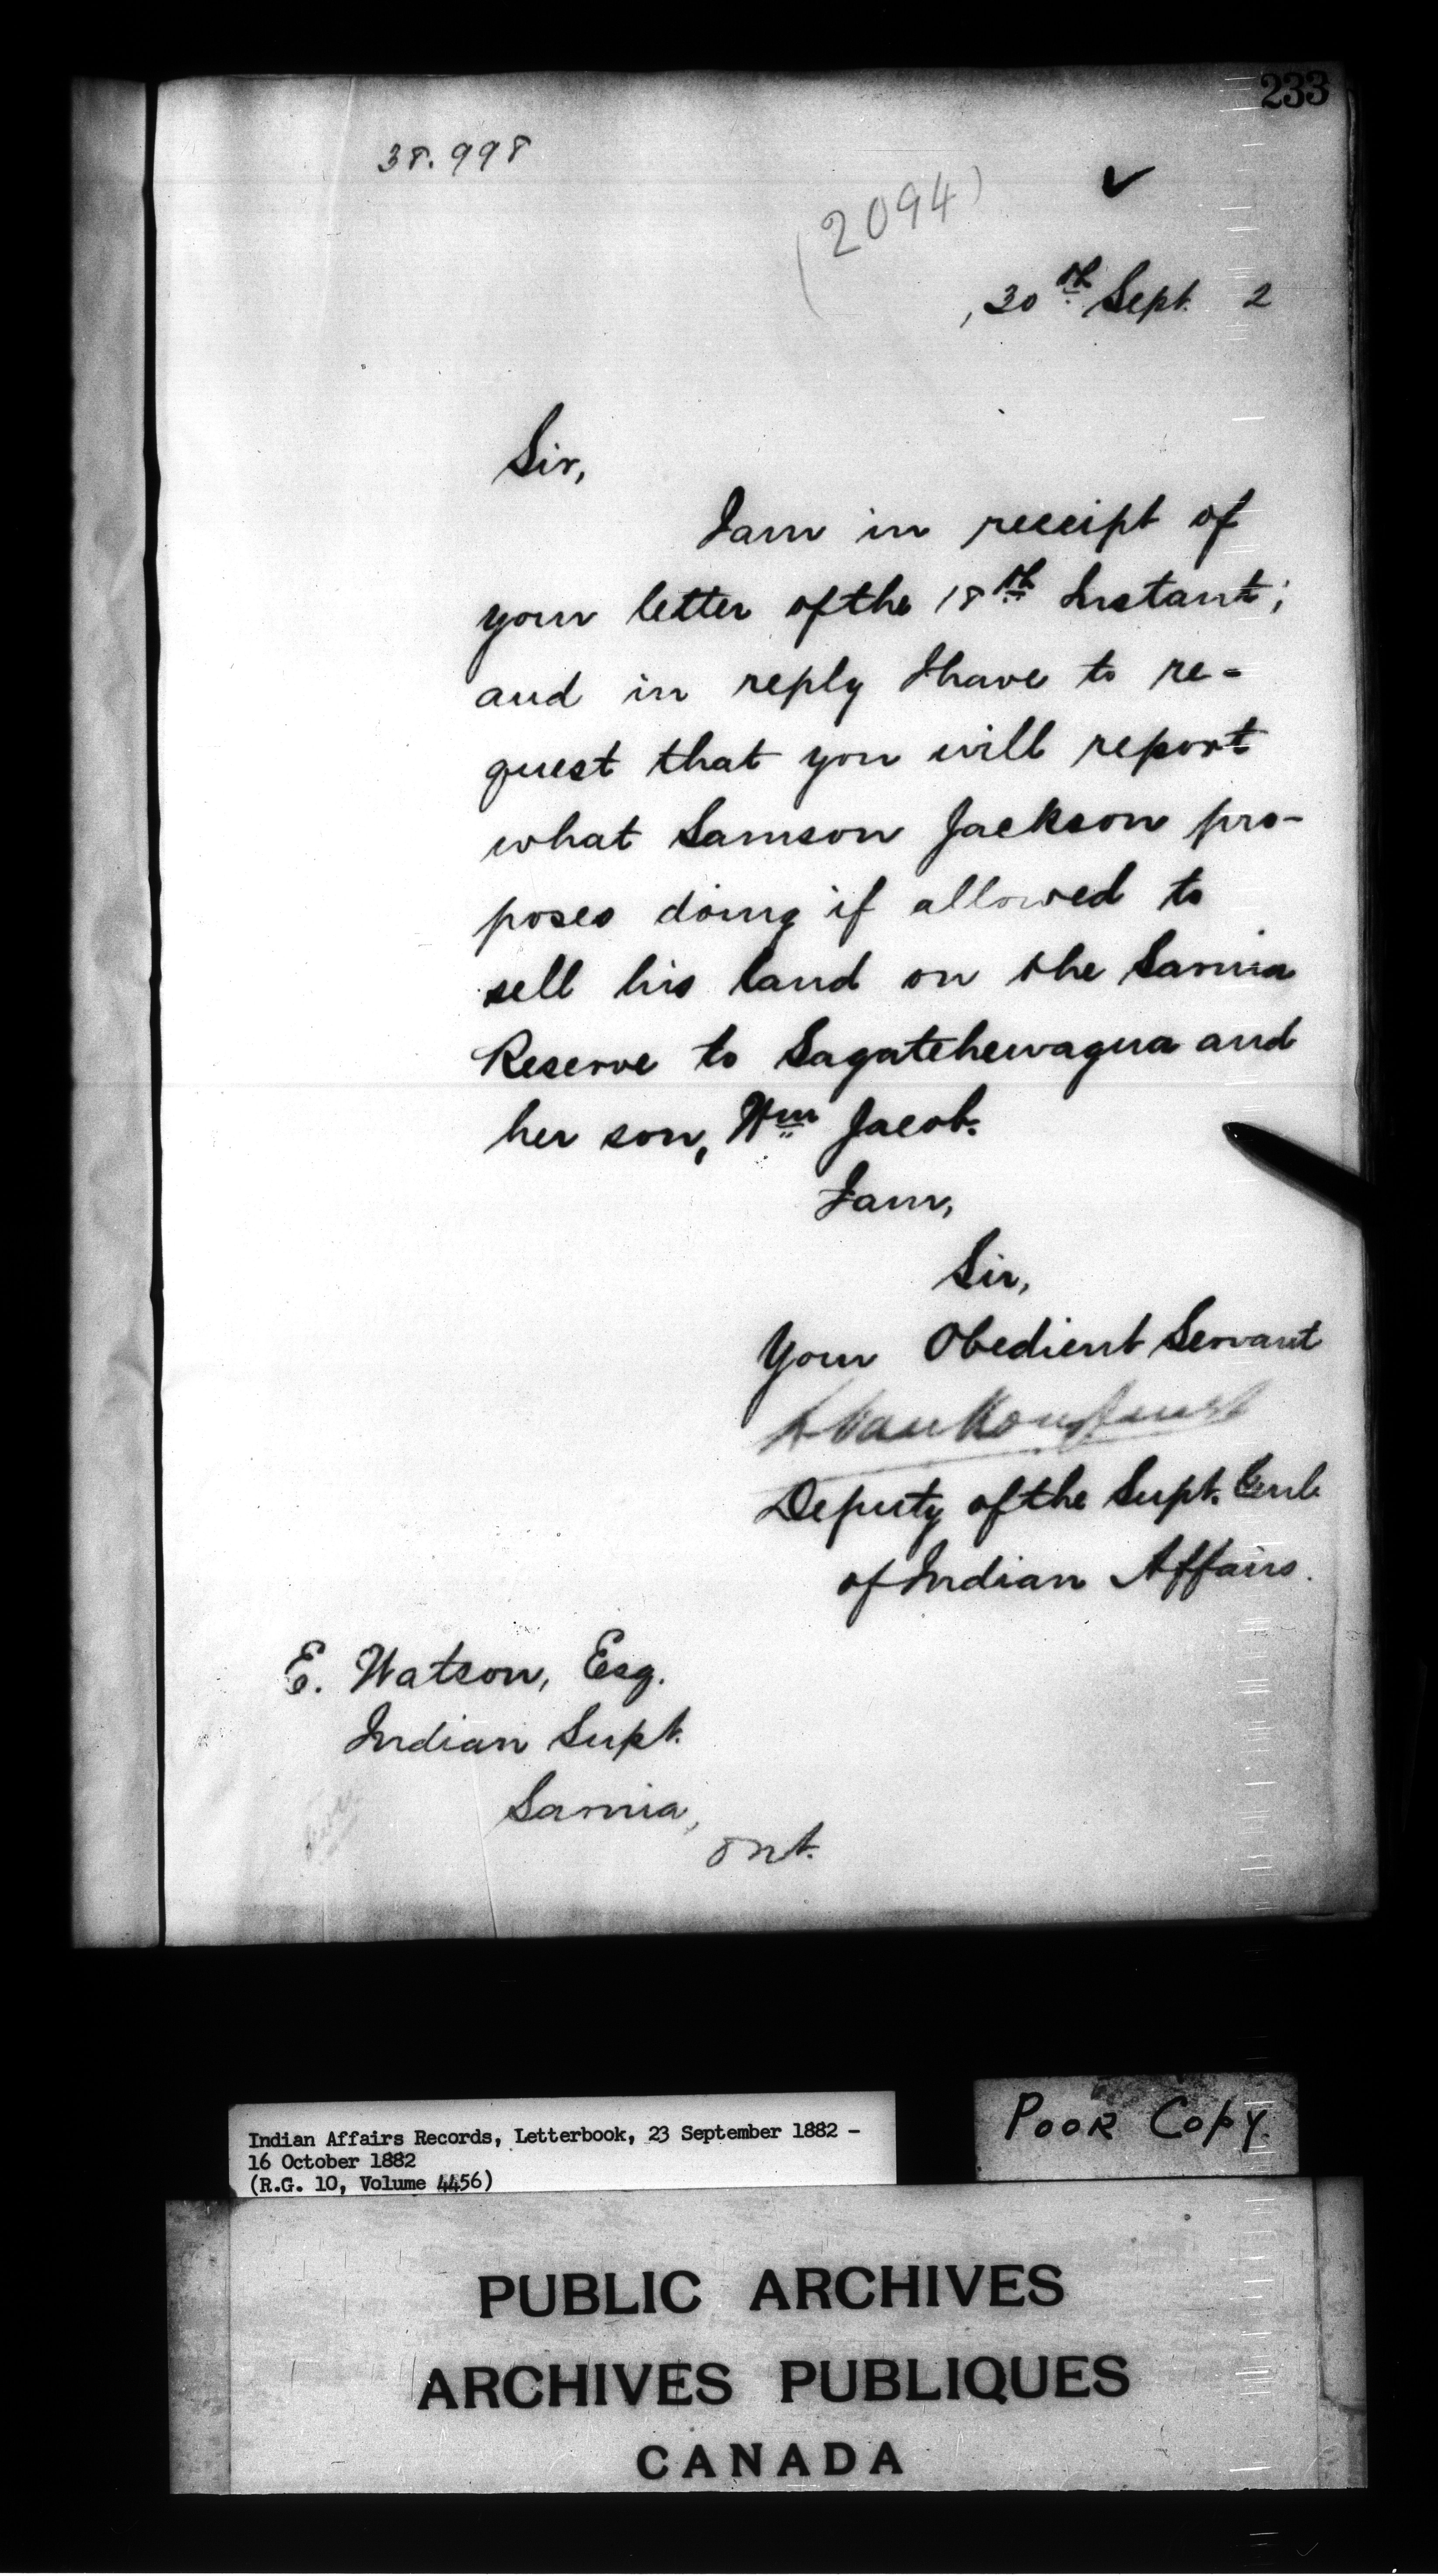 233
38.998
(2094)
, 30th Sept. 2
Sir,
I am in receipt of
your letter of the 18th Instant;
and in reply I have to re-
quest that you will report
what Samson Jackson pro-
poses doing if allowed to
sell his land on the Sarnia
Reserve to Sagatchewagua and
her son, Wm Jacob.
I am,
Sir,
Your Obedient Servant
L VanKoughnet
Deputy of the Supt. Genl.
of Indian Affairs.
E. Watson, Esq.
Indian Supt.
Sarnia,
Ont.
Indian Affairs Records, Letterbook, 23 September 1882 -
16 October 1882
(R.G. 10, Volume 4456)
POOR COPY.
PUBLIC ARCHIVES
ARCHIVES PUBLIQUES
CANADA